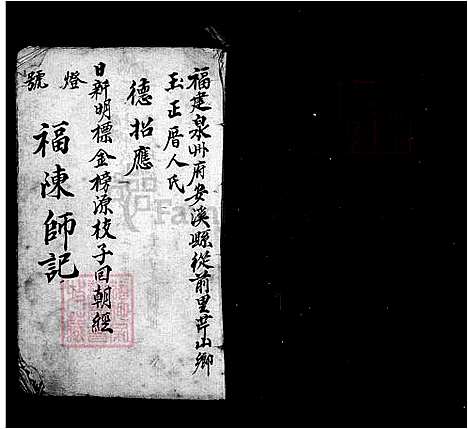 福建泉州府安溪縣從前里芹山鄉
玉正厝人氏
德招應
日新明標金榜源枝子回朝經
燈號
福陳師記